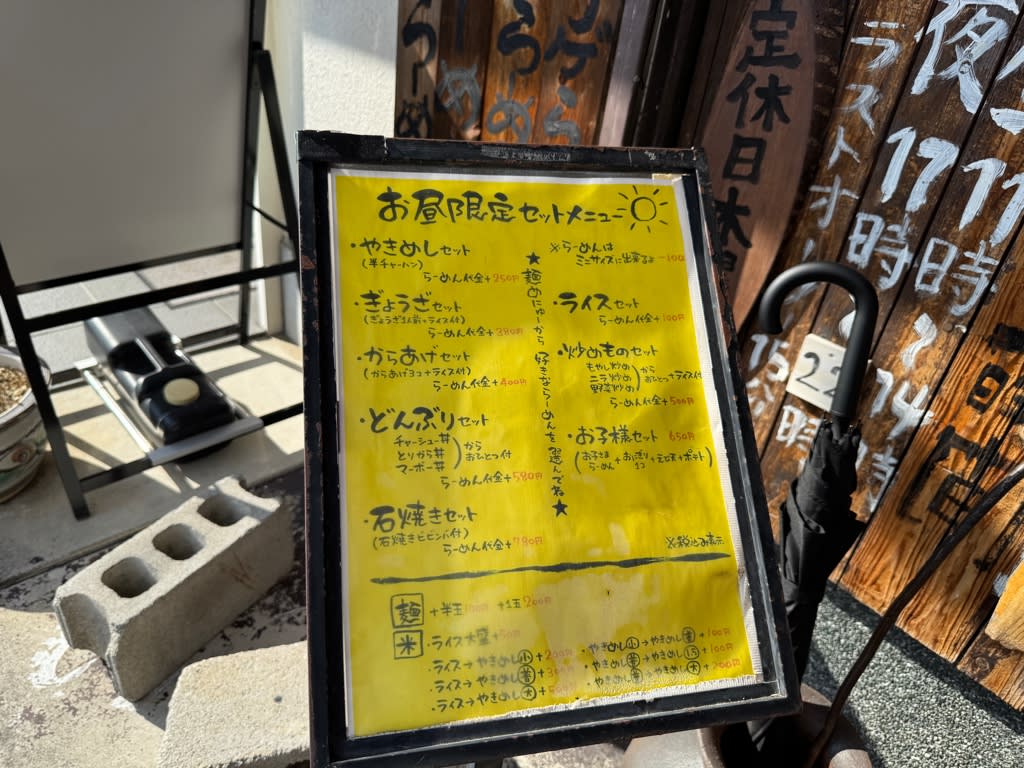 お昼限定セットメニュー
・やきめしセット
(半チャーハン)
らーめん代金+250円
・ぎょうざセット
(ぎょうざ1人前+ライス付)
らーめん代金+380円
・からあげセット
(からあげ3コ+ライス付)
らーめん代金+400円
・どんぶりセット
チャーシュー丼
とりから丼
マーボー丼
から
おひとつ付
らーめん代金+580円
・石焼きセット
(石焼きビビンバ付)
らーめん代金+780円
★麺めにゅーから 好きならーめんを選んでね★
※らーめんは
ミニサイズに出来るよ -100
・ライスセット
らーめん代金+100円
・炒めものセット
もやし炒め
ニラ炒め
野菜炒め
から
おひとつ+ライス付
らーめん代金+500円
・お子様セット 650円
お子さま
らーめん
+おにぎり
1コ
※税込み表示
麺 +半玉100円 +1玉200円
米 ・ライス大盛+50円
・ライス→やきめし小+200円
・ライス→やきめし普+300円
・ライス→やきめし大+
・やきめし小→やきめし普+100円
・やきめし普→やきめし1.5+100円
・やきめし普→やきめし大+200円
らーめ
らーめ
ゲら
定休日
ラストオー
夜
17
11
時
時
15
14
時
分
時
22